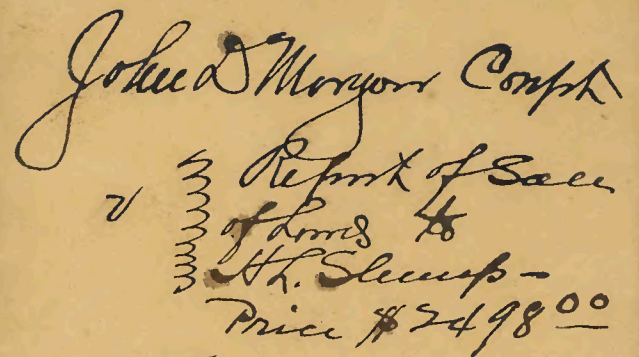 John D Morgan Complt
Report of Sale
v
of Land to
H L. Slemp -
Price $2498.00